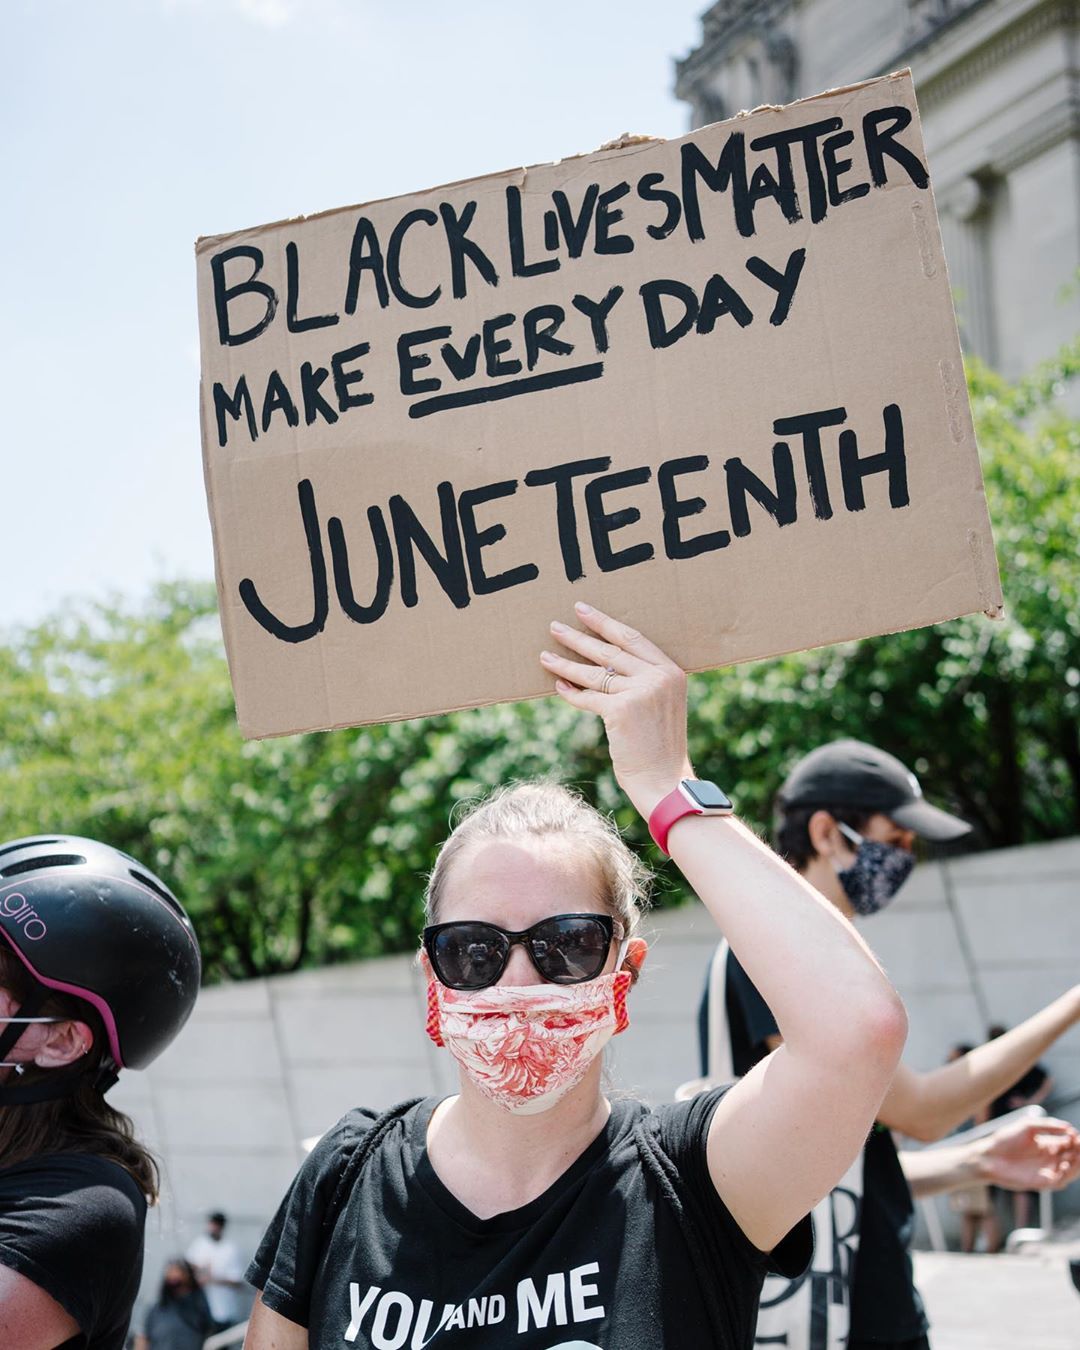 BLACK LIVES MATTER
MAKE EVERY DAY
JUNETEENTH
giro
YOU AND ME